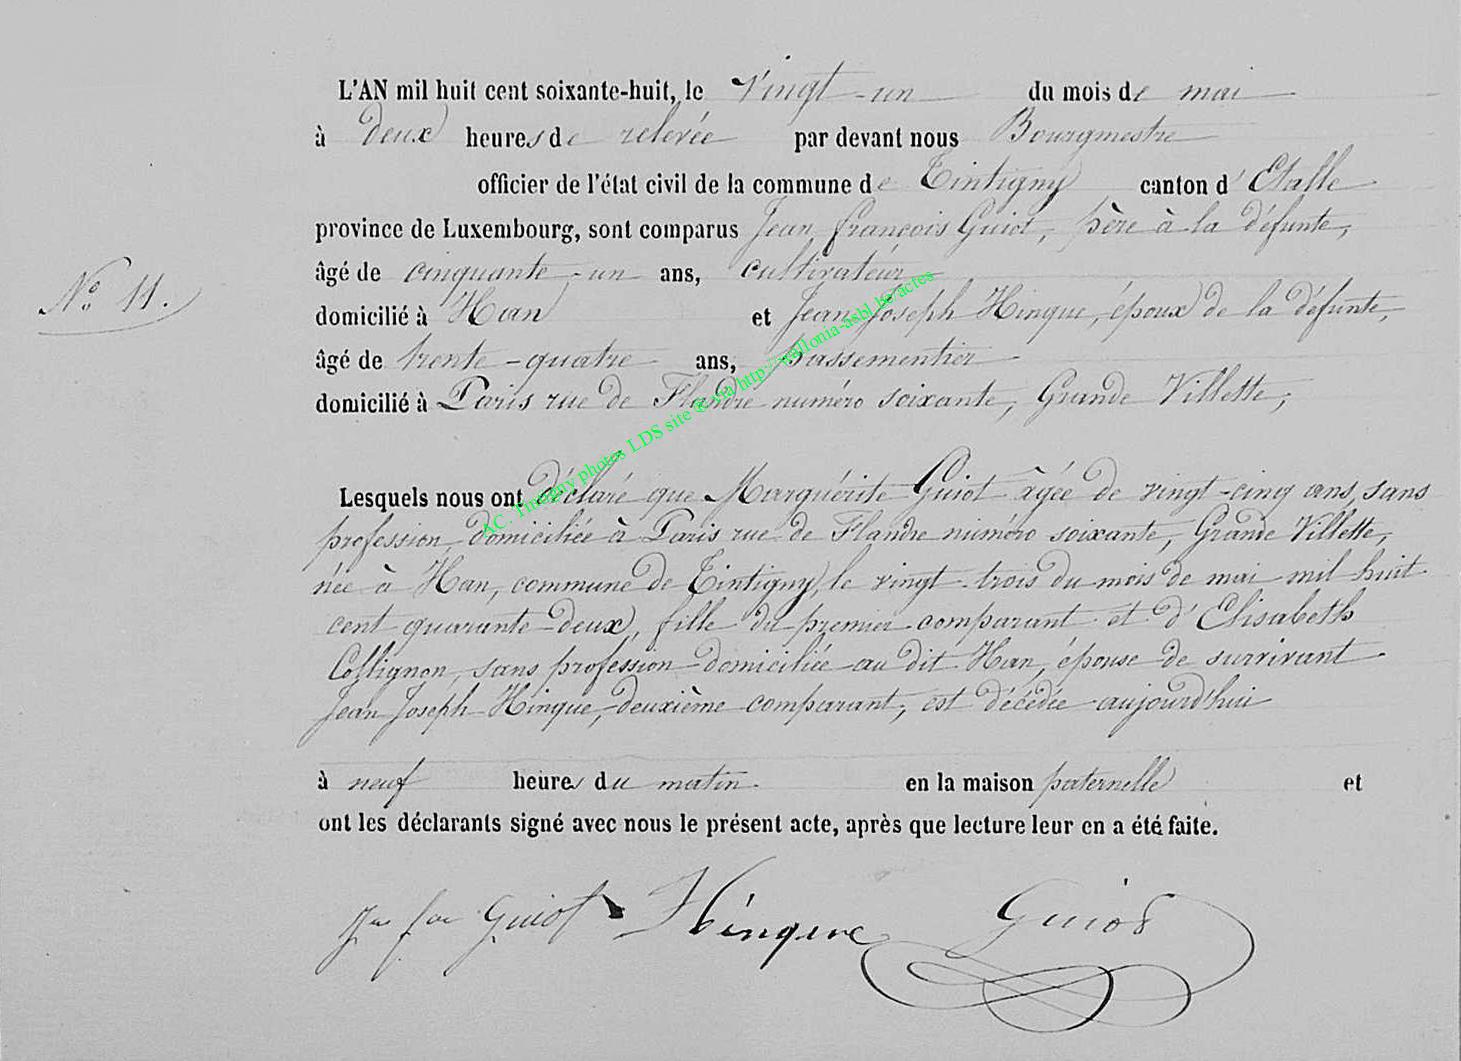 L'AN mil huit cent soixante-huit, le vingt-un du mois de mai
à deux heures de relevée par devant nous Bourgmestre
officier de l'état civil de la commune de Tintigny canton d'Etalle
province de Luxembourg, sont comparus Jean françois Guiot, père à la défunte,
âgé de cinquante-un ans, cultivateur
N° 11.
domicilié à Han et Jean Joseph Hinque, époux de la défunte,
âgé de trente-quatre ans, passementier
domicilié à Paris rue de Flandre numéro soixante, Grande Villette,
AC. Tintigny photos LDS site & via http://wallonia-asbl.be/actes
Lesquels nous ont déclaré que Marguérite Guiot âgée de vingt-cinq ans, sans
profession, domiciliée à Paris rue de Flandre numéro soixante, Grande Villette,
née à Han, commune de Tintigny, le vingt-trois du mois de mai mil huit
cent quarante-deux, fille du premier comparant et d'Elisabeth
Collignon, sans profession domiciliée au dit Han, épouse de survivant
Jean Joseph Hinque, deuxième comparant, est décédée aujourd'hui
à neuf heures du matin. en la maison paternelle et
ont les déclarants signé avec nous le présent acte, après que lecture leur en a été faite.
Jn fx Guiot Hinque Guiot